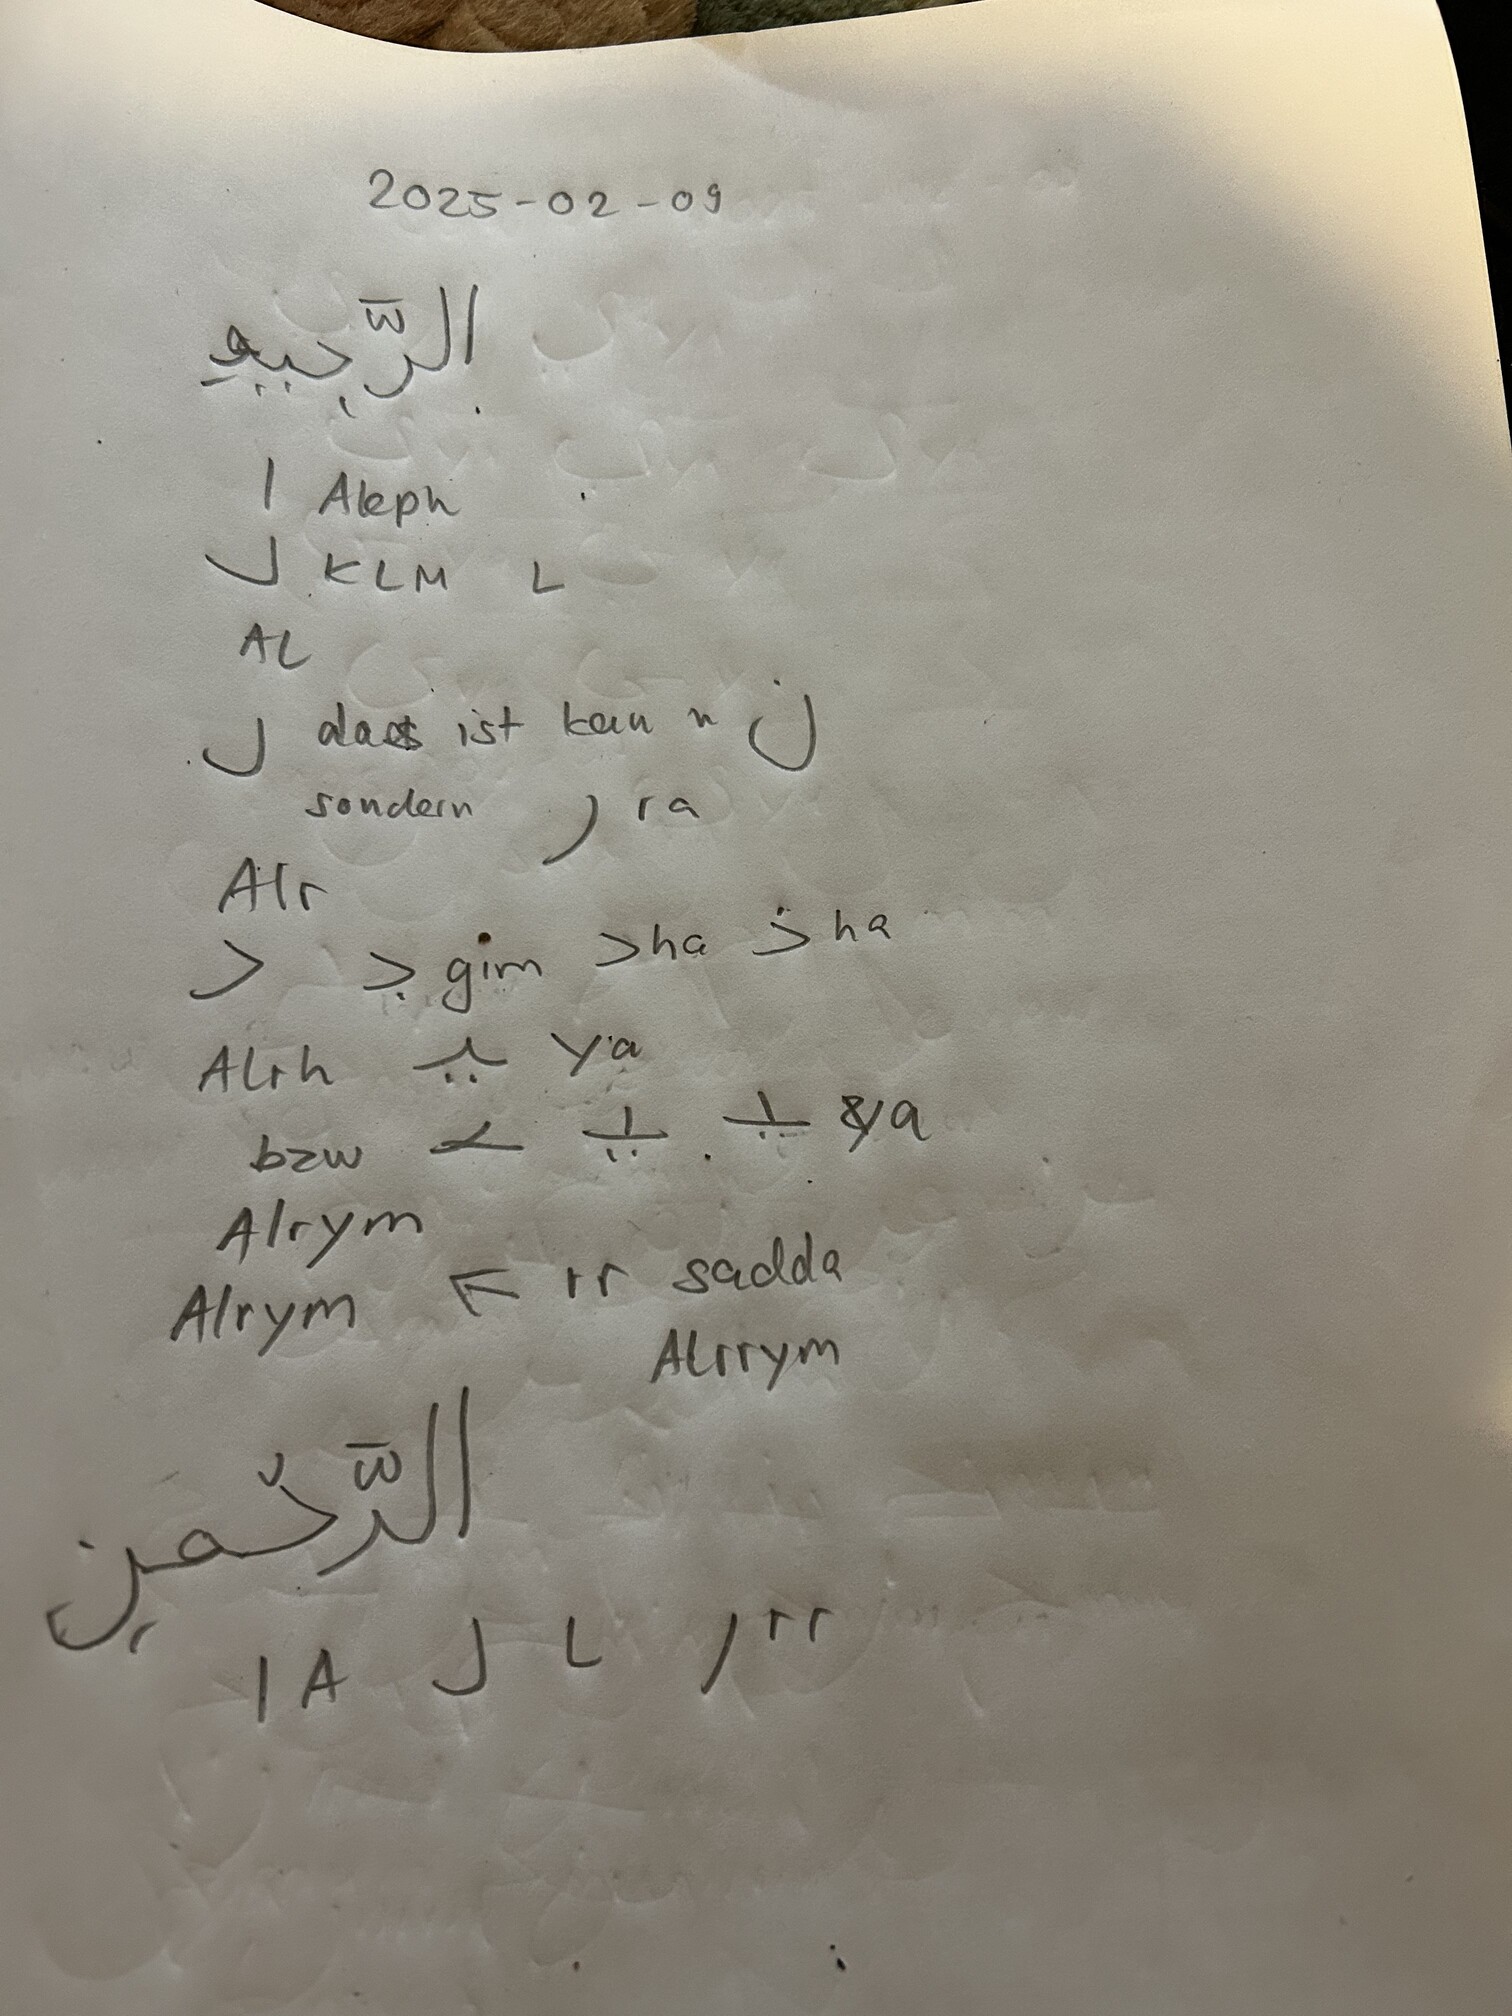 2025-02-09
الرَّجيم
ا Aleph
ل KLM L
AL
ل das ist kein n ن
sondern ر ra
Alr
د ج gim ح ha خ ha
Alrh ـيـ ya
bzw ـيـ ـيـ ya
Alrym
Alrym ← rr sadda
Alrrym
الرَّحْمن
ا A ل L ر rr